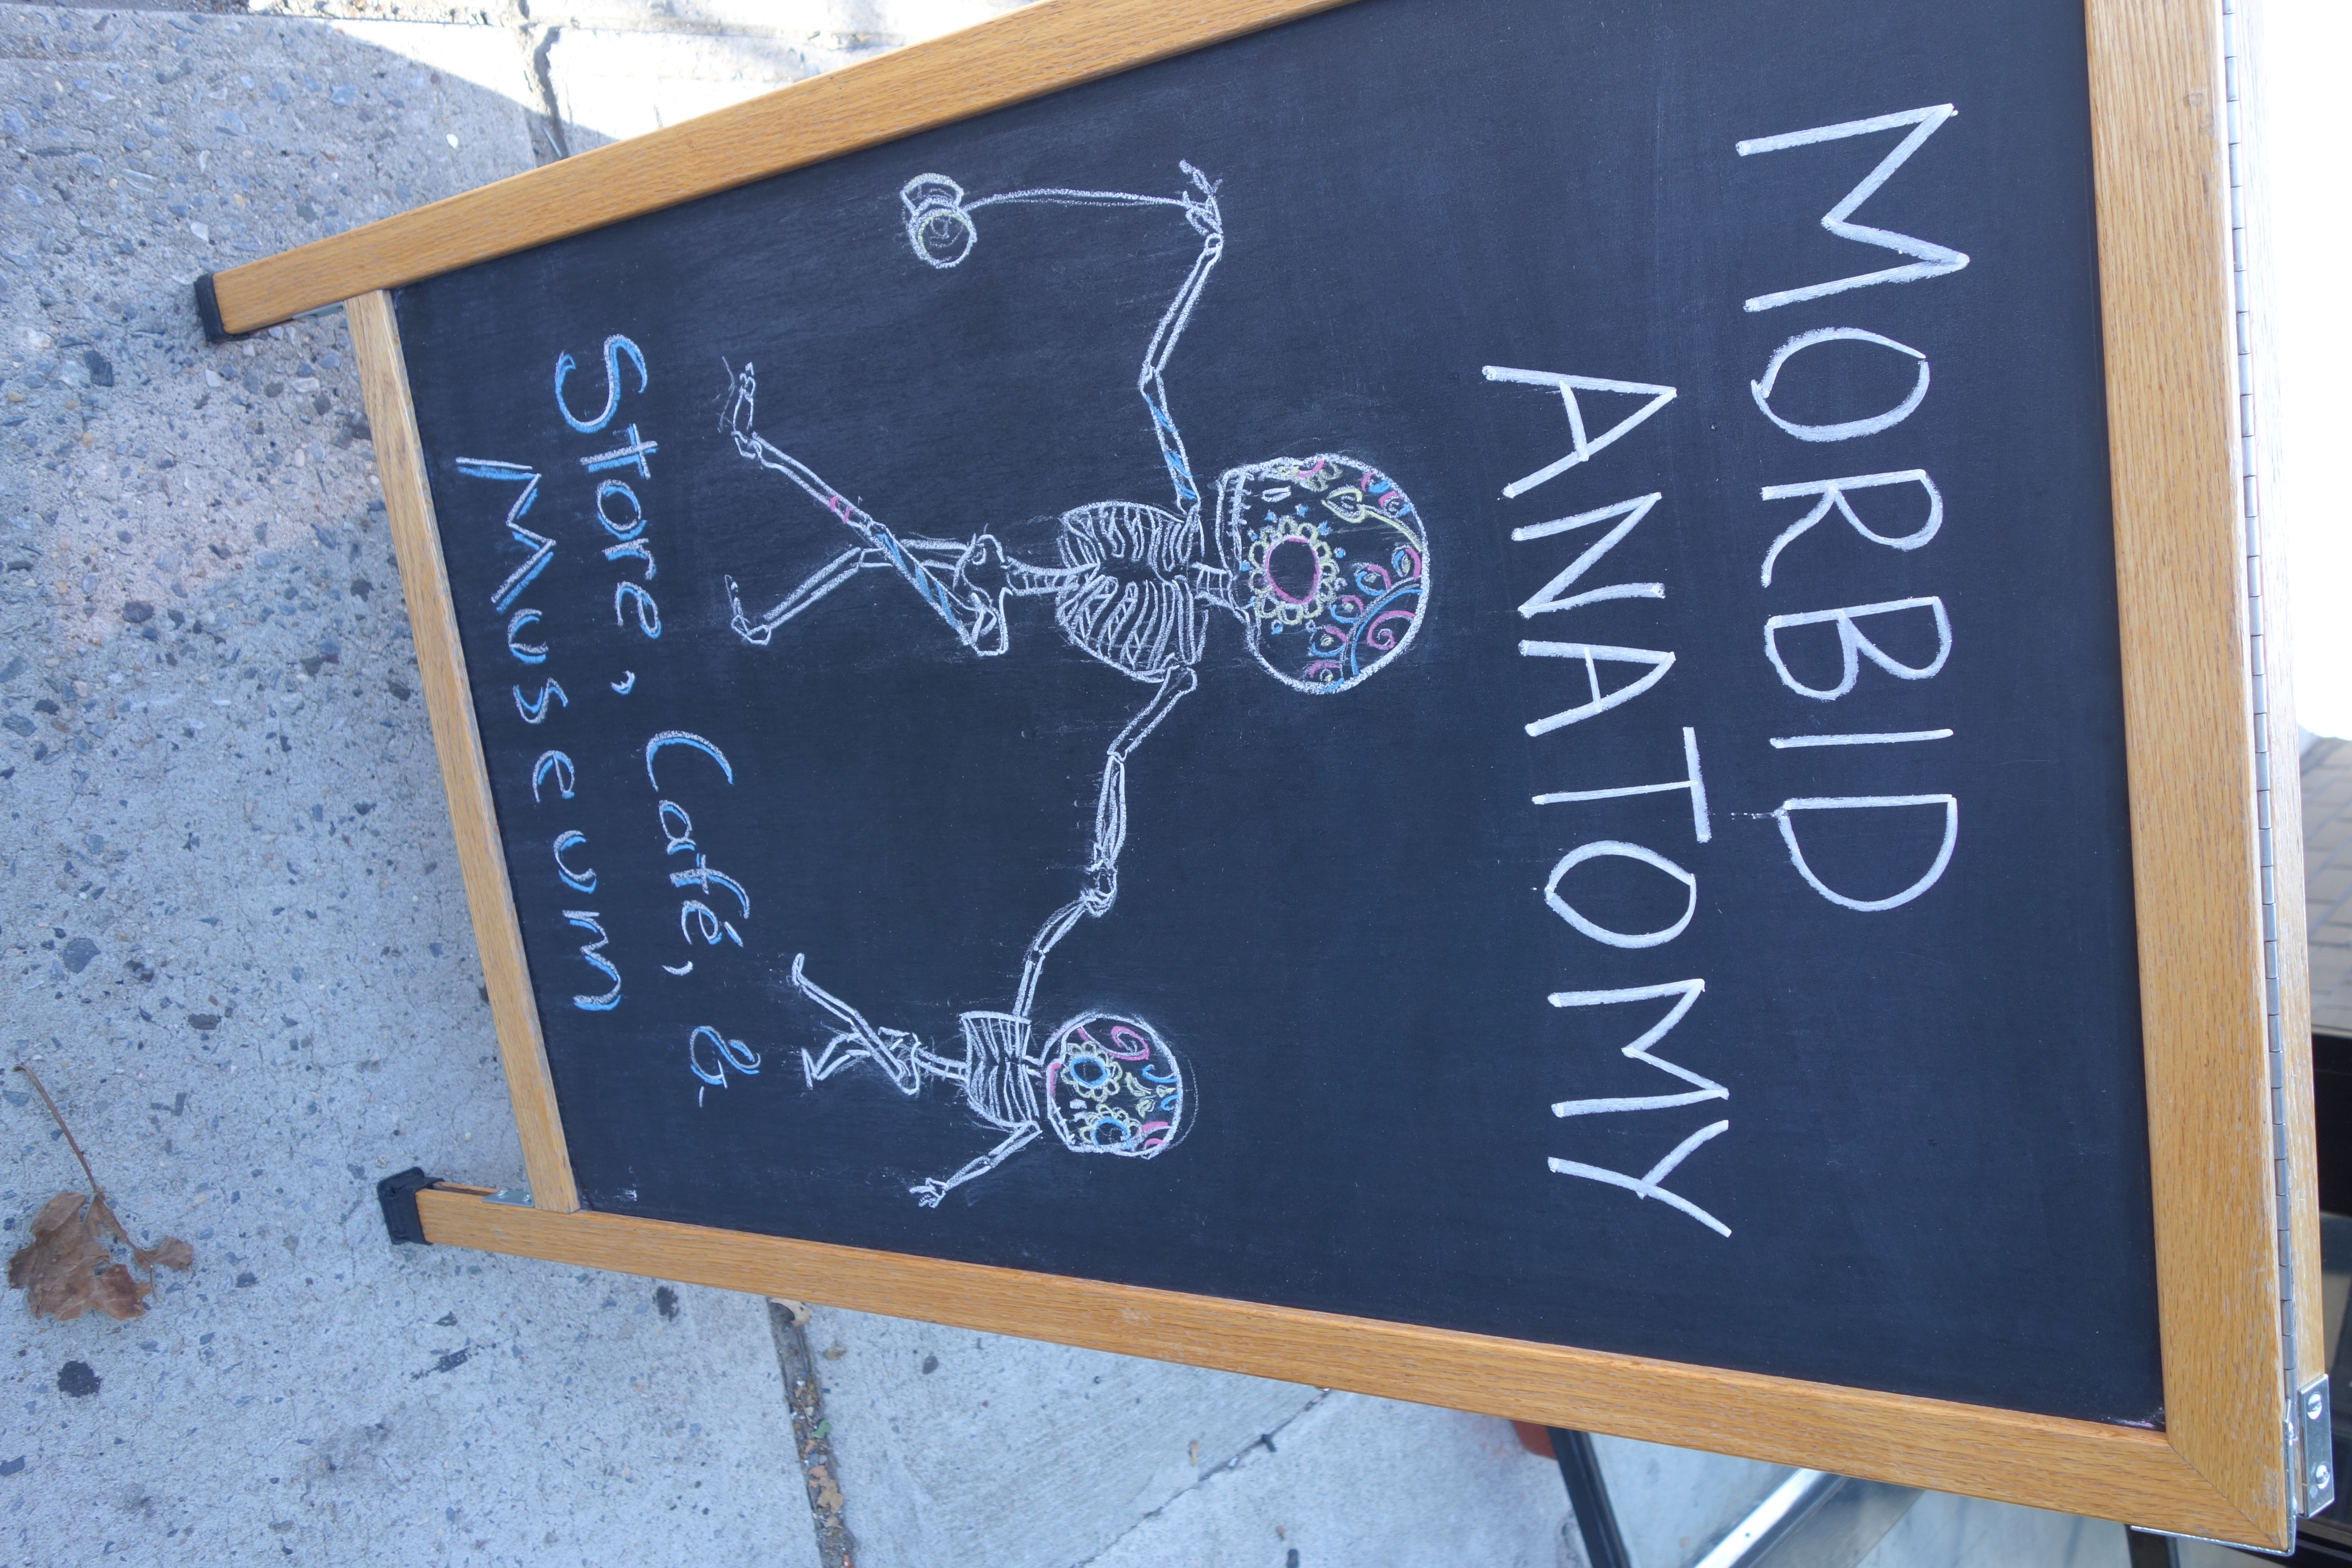 MORBID
ANATOMY
Store, Café, &
Museum